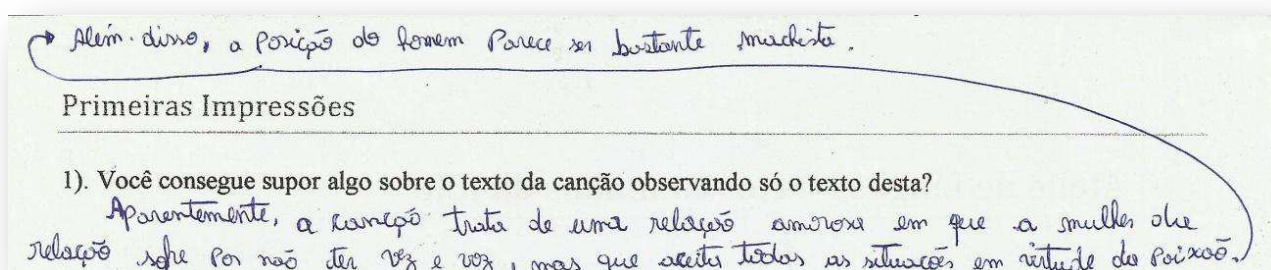 Além disso, a posição do homem Parece ser bastante machista.
Primeiras Impressões
1). Você consegue supor algo sobre o texto da canção observando só o texto desta?
Aparentemente, a canção trata de uma relação amorosa em que a mulher da
relação sofre por não ter vez e voz, mas que aceita todas as situações em virtude da paixão.